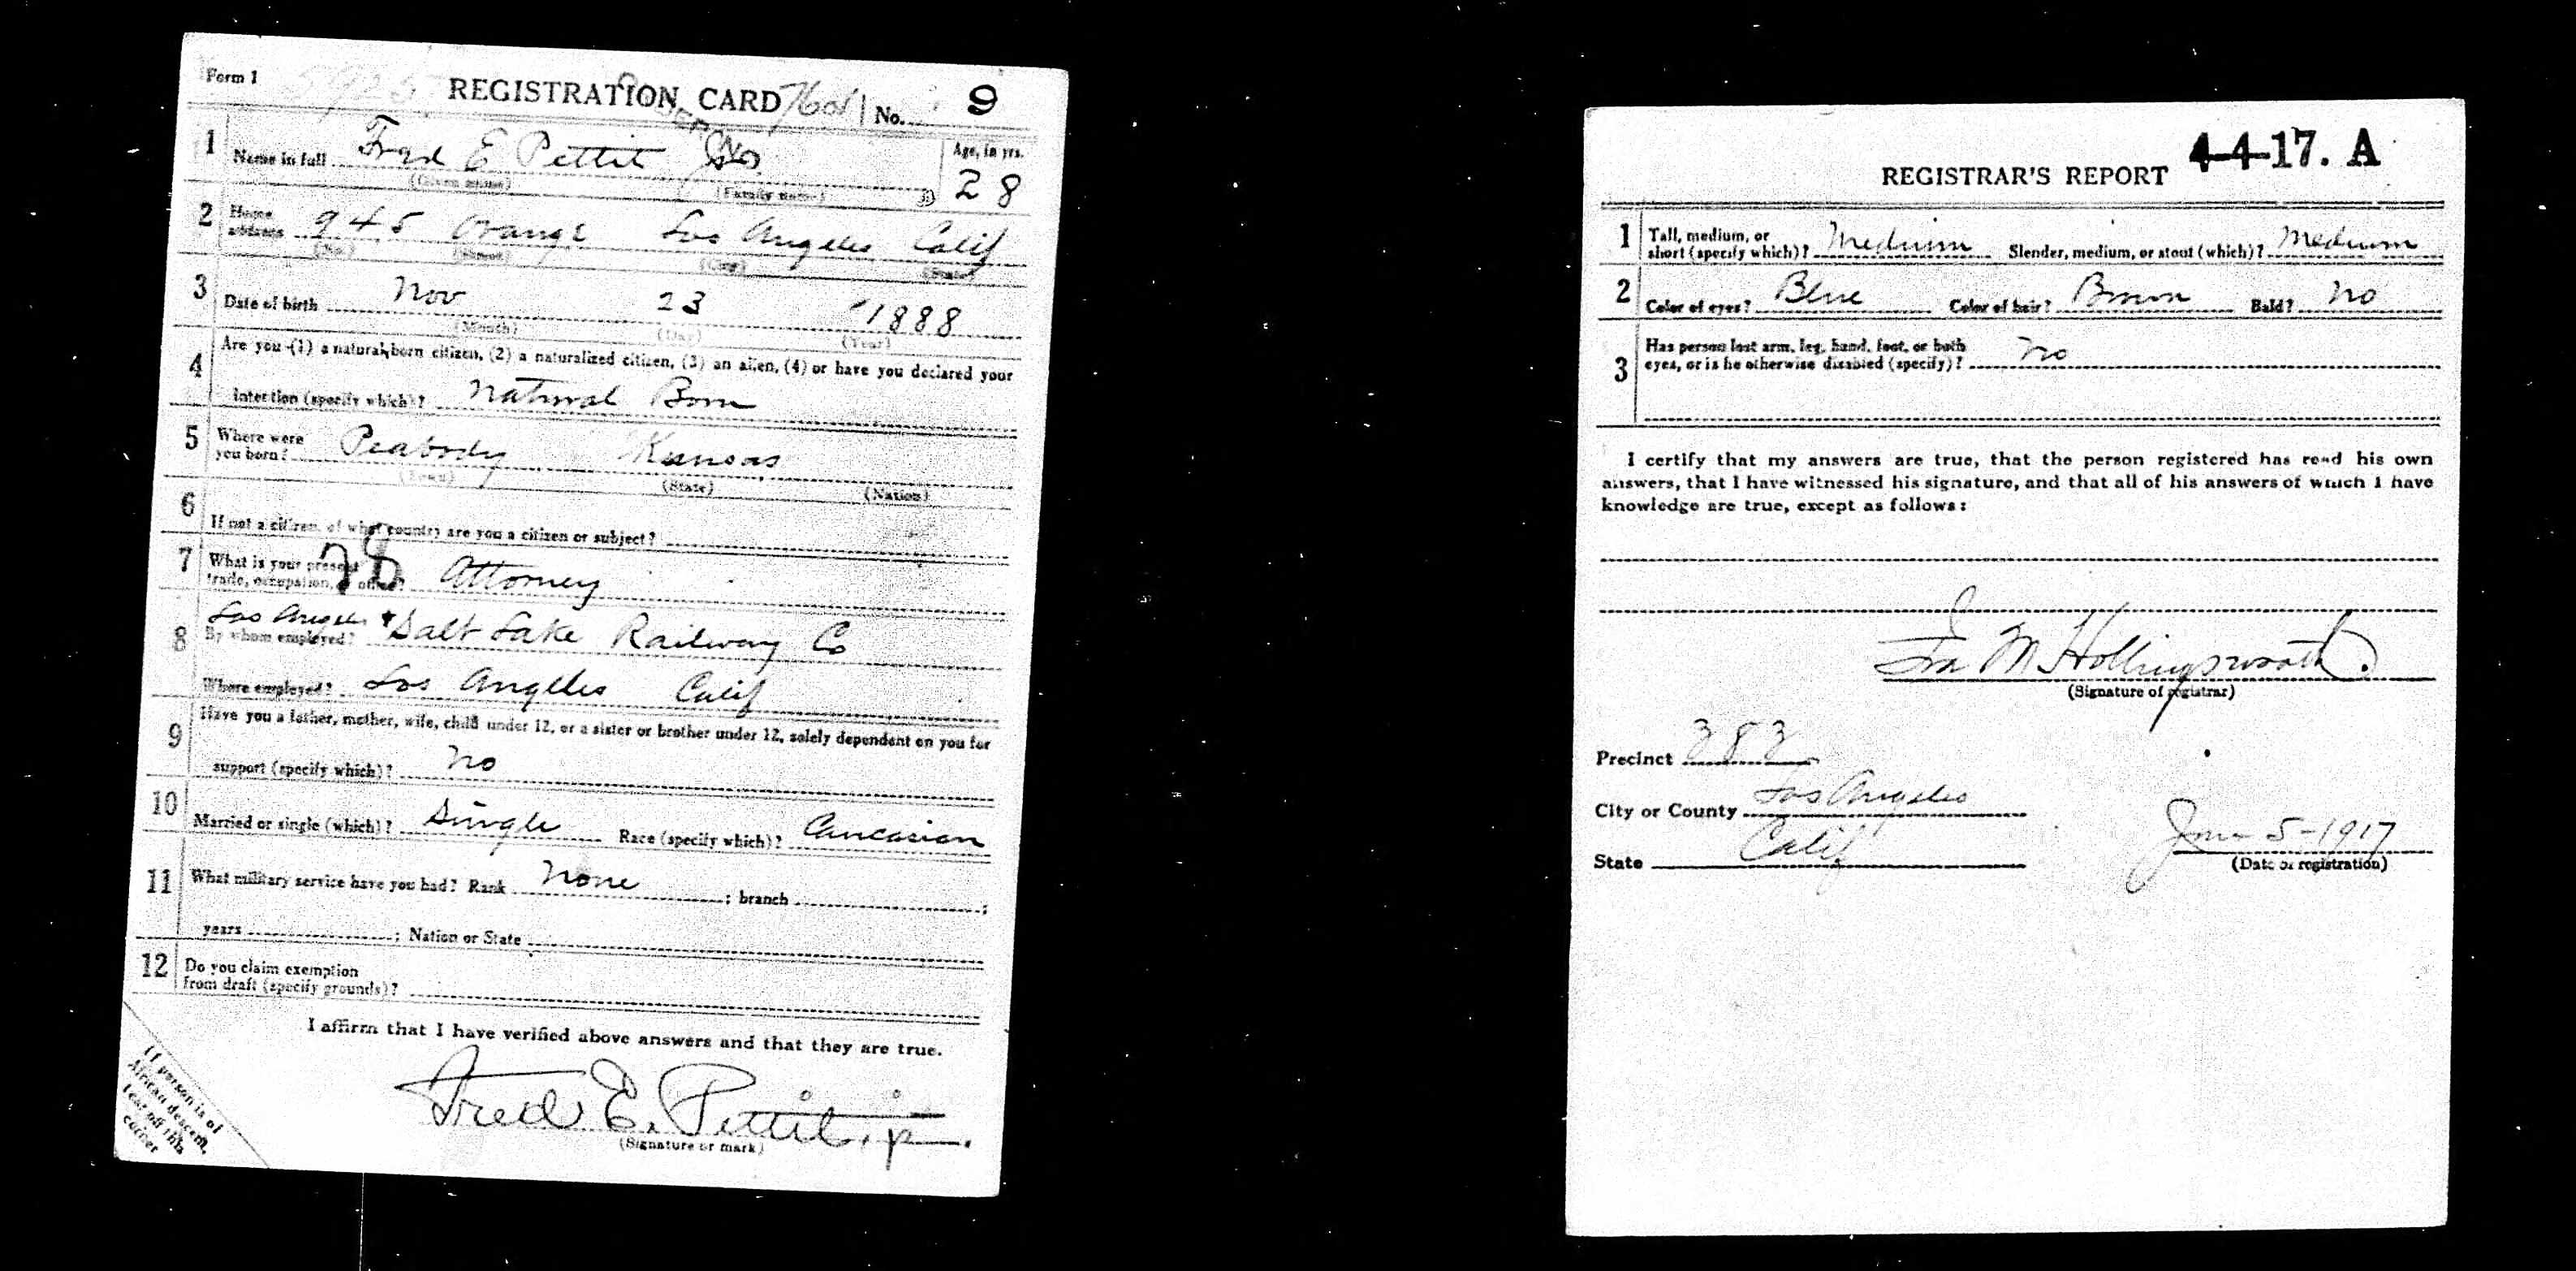 Form 1
REGISTRATION CARD No. 9
1 Name in full Fred E Pettit Jr. Age, in yrs.
(Given name) (Family name) 28
2 Home address 945 Orange Los Angeles Calif
(No.) (Street) (City) (State)
3 Date of birth Nov 23 1888
(Month) (Day) (Year)
4 Are you (1) a natural born citizen, (2) a naturalized citizen, (3) an alien, (4) or have you declared your
intention (specify which)? Natural Born
5 Where were
you born? Peabody Kansas
(Town) (State) (Nation)
6 If not a citizen, of what country are you a citizen or subject?
7 What is your present
trade, occupation, or office? Attorney
8 Los Angeles &
By whom employed? Salt Lake Railway Co
Where employed? Los Angeles Calif
9 Have you a father, mother, wife, child under 12, or a sister or brother under 12, solely dependent on you for
support (specify which)? No
10 Married or single (which)? Single Race (specify which)? Caucasian
11 What military service have you had? Rank None ; branch ;
years ; Nation or State
12 Do you claim exemption
from draft (specify grounds)?
I affirm that I have verified above answers and that they are true.
Fred E. Pettit, jr.
(Signature or mark)
If person is of
African descent,
tear off this
corner
REGISTRAR'S REPORT 4-4-17. A
1 Tall, medium, or
short (specify which)? Medium Slender, medium, or stout (which)? Medium
2 Color of eyes? Blue Color of hair? Brown Bald? No
3 Has person lost arm, leg, hand, foot, or both
eyes, or is he otherwise disabled (specify)? No
I certify that my answers are true, that the person registered has read his own
answers, that I have witnessed his signature, and that all of his answers of which I have
knowledge are true, except as follows:
Ira M Hollingsworth.
(Signature of registrar)
Precinct 383
City or County Los Angeles
State Calif
June 5-1917
(Date of registration)